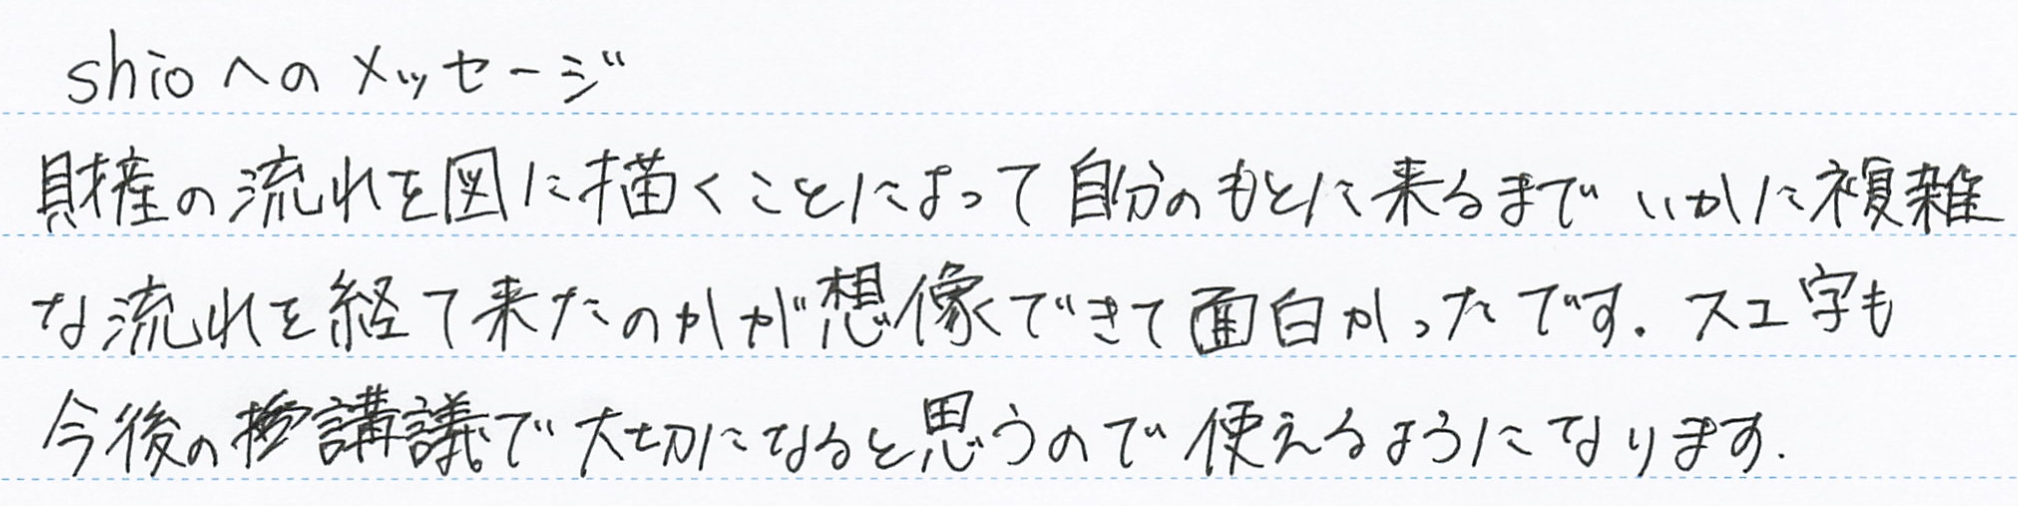 shioへのメッセージ
財産の流れを図に描くことによって自分のもとに来るまでいかに複雑
な流れを経て来たのかが想像できて面白かったです。スユ字も
今後の講議で大切になると思うので使えるようになります.